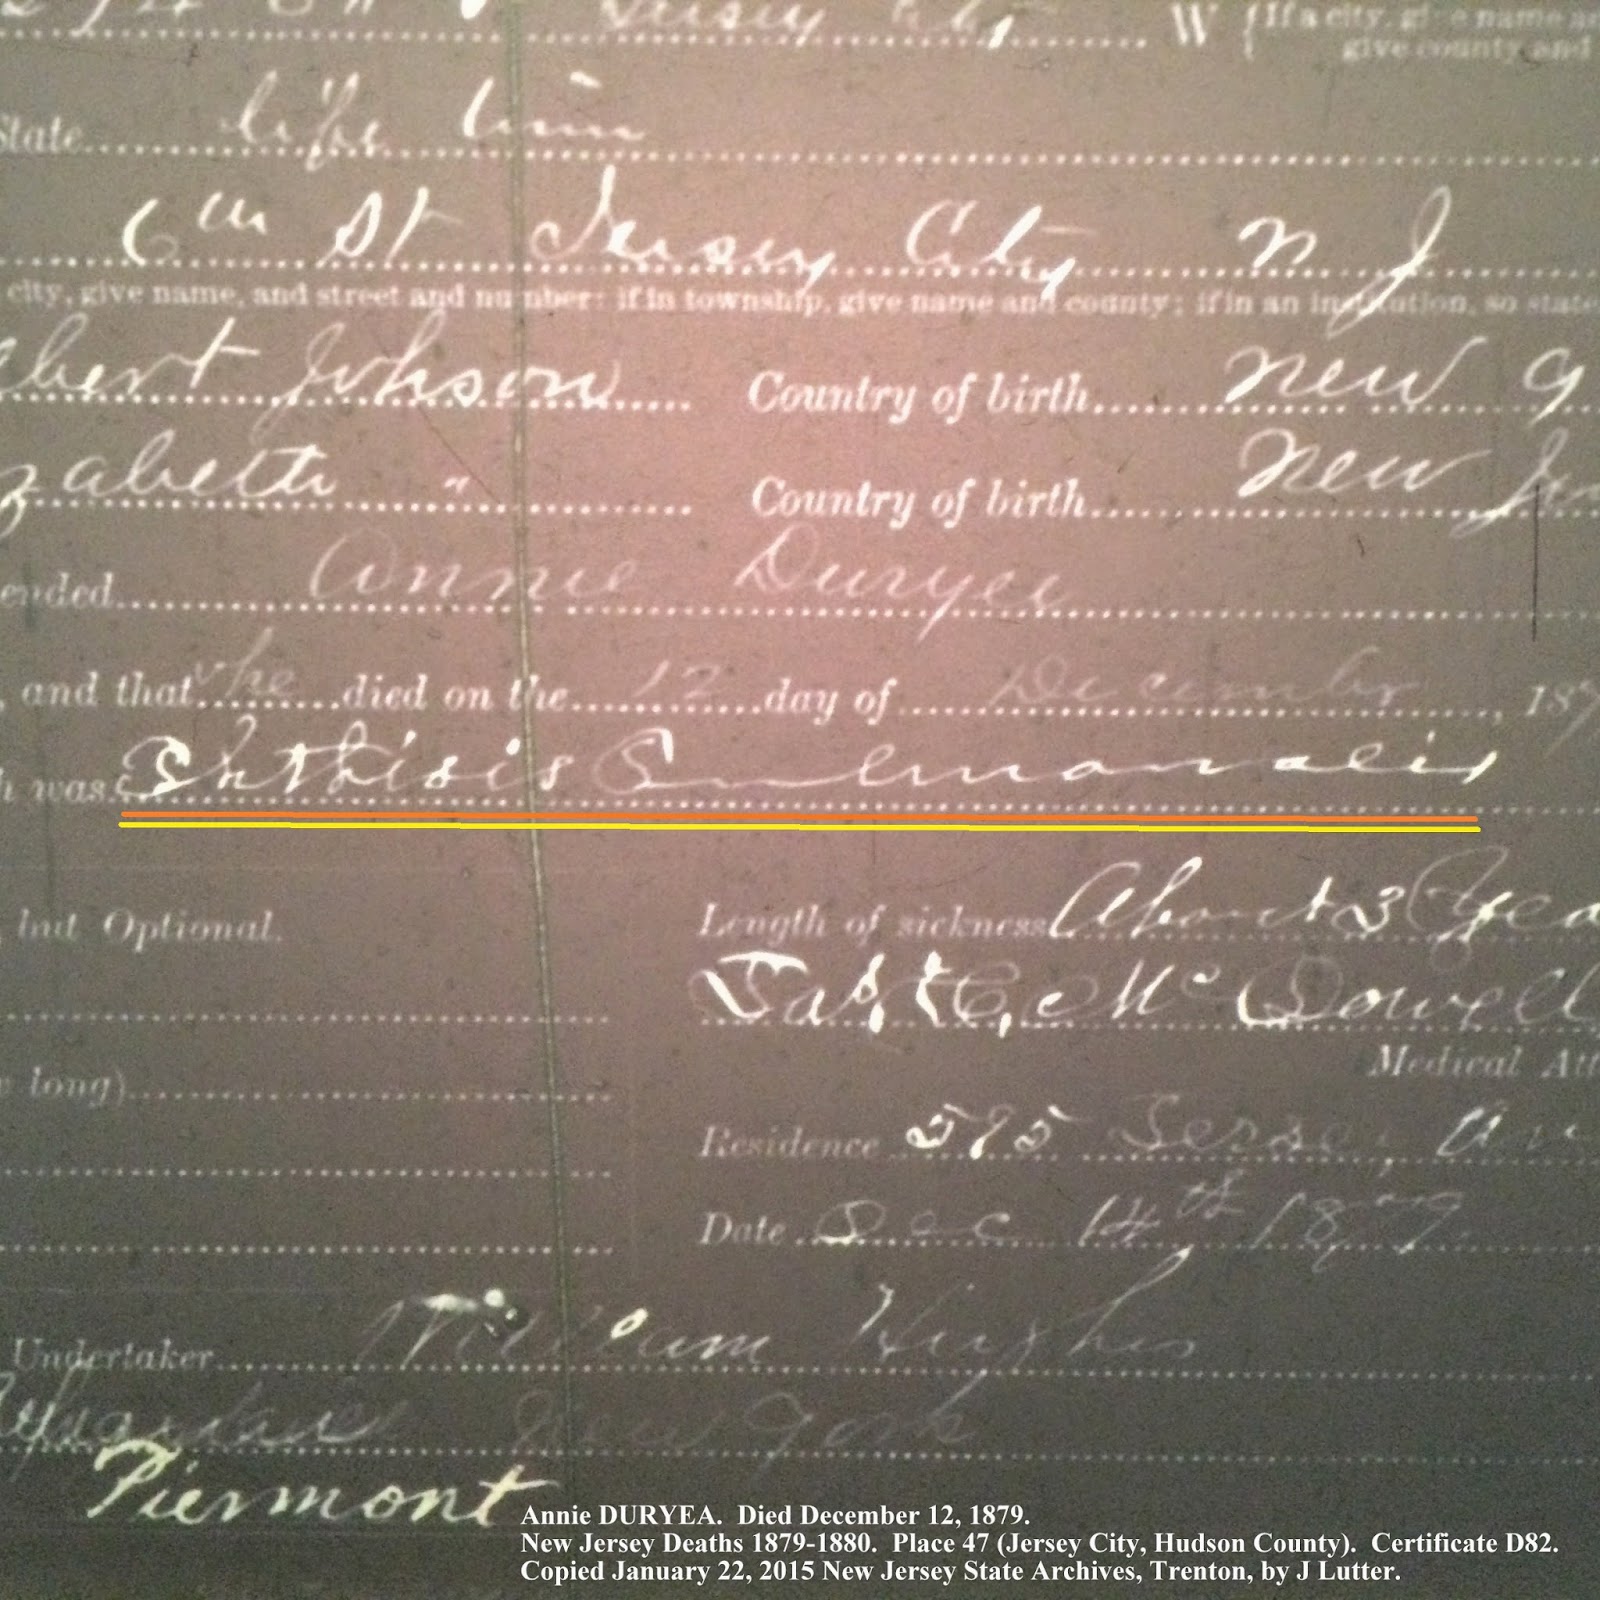 Jersey City W {If a city, give name an
give county and
State life time
6th St Jersey City N J
city, give name, and street and number: if in township, give name and county; if in an institution, so state
bert Johson Country of birth New Y
zabeth " Country of birth New Je
ended Annie Duryee
, and that she died on the 12 day of December, 187
h was Phthisis Pulmonalis
, but Optional. Length of sickness About 3 Yea
Jas. C. McDowell
Medical Att
w long)
Residence 595 Jersey Av
Date Dec 14th 1879
Undertaker William Hughes
New York
Piermont
Annie DURYEA. Died December 12, 1879.
New Jersey Deaths 1879-1880. Place 47 (Jersey City, Hudson County). Certificate D82.
Copied January 22, 2015 New Jersey State Archives, Trenton, by J Lutter.